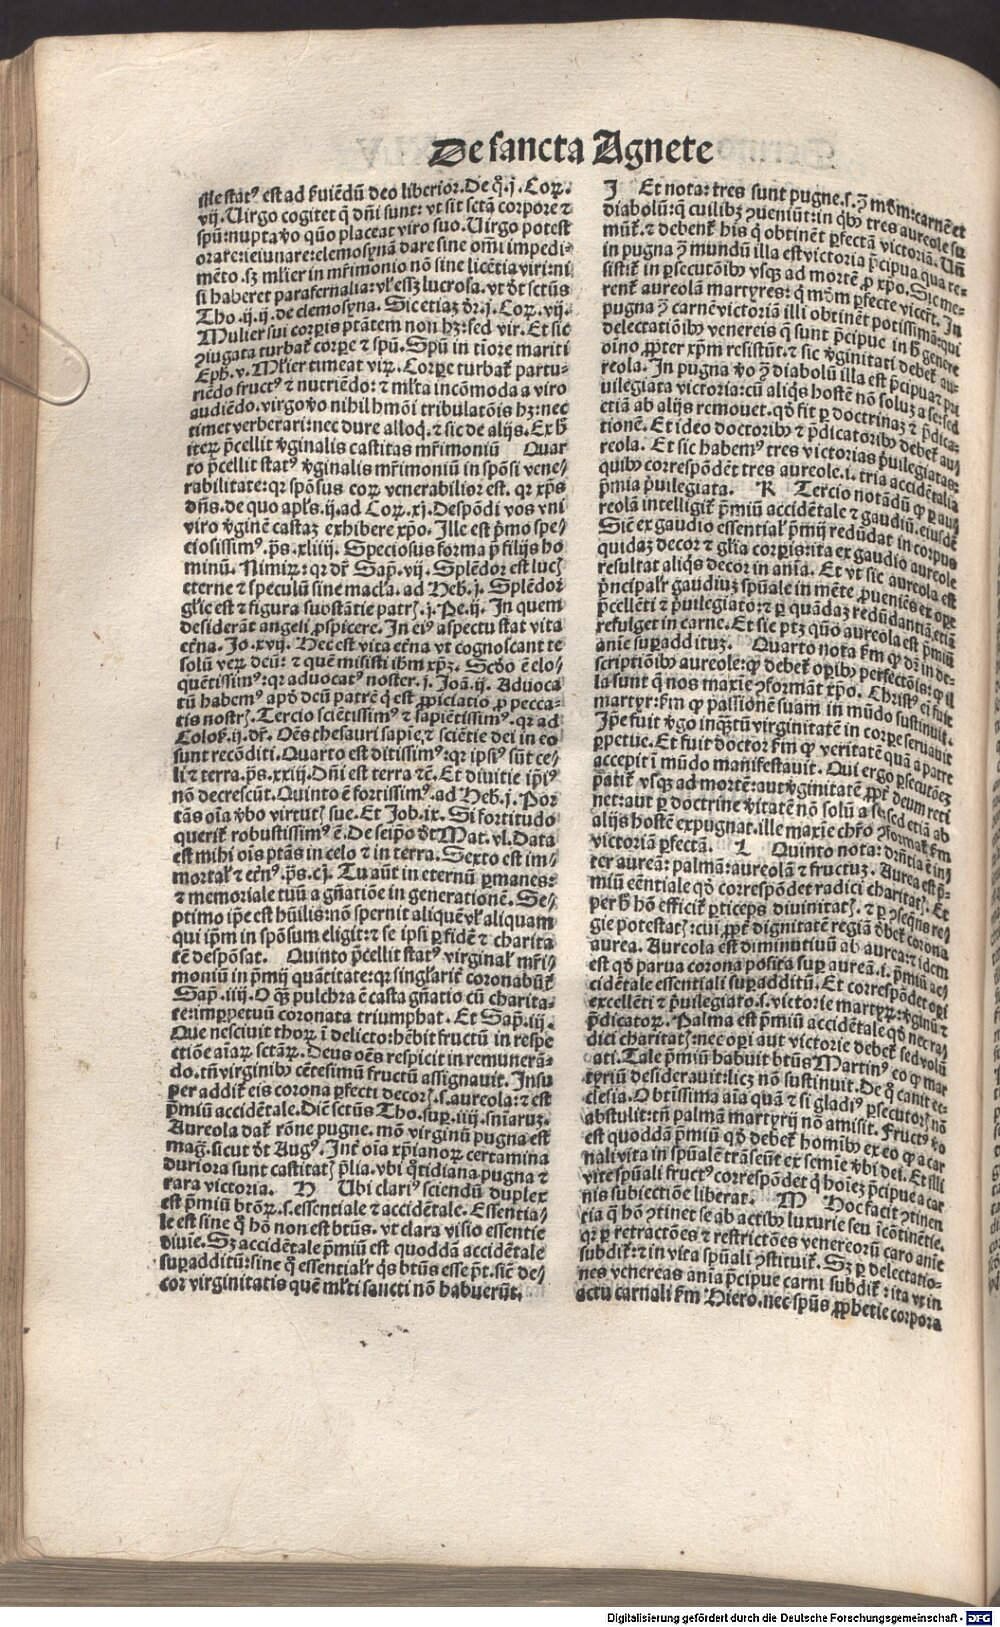 De sancta Agnete
ille statꝰ est ad ẜuiẽdũ deo liberior. De q̊. j. Coꝝ.
vij. Uirgo cogitet q̃ dñi sunt: vt sit sctã corpore ⁊
spũ: nupta ꝟo quõ placeat viro suo. Uirgo potest
orare: ieiunare: elemosynã dare sine om̃i impedi-
mẽto. sꝫ ml̓ier in mr̃imonio nõ sine licẽtia viri: ni
si haberet parafernalia: vl̓ eẜꝫ lucrosa. vt ðt sctũs
Tho. ij. ij. de elemosyna. Sic etiaꝫ ðr̃. j. Coꝝ. vij.
Mulier sui corꝑis ptãtem non hꝫ: sed vir. Et sic
ꝯiugata turbat̃ corꝑe ⁊ spũ. Spũ in tiore mariti
Eph. v. Ml̓ier timeat virꝝ. Corꝑe turbat̃ partu-
riẽdo fructꝰ ⁊ nutriẽdo: ⁊ ml̓ta incõmoda a viro
audiẽdo. virgo ꝟo nihil hmõi tribulatõis hꝫ: nec
timet verberari: nec dure alloq̃. ⁊ sic de alijs. Ex h̃
iteꝝ p̃cellit ꝟginalis castitas mr̃imoniũ Quar
to p̃cellit statꝰ ꝟginalis mr̃imoniũ in spõsi vene-
rabilitate: qꝛ spõsus coꝝ venerabilior est. qꝛ xp̃s
dñs. de quo apl̓s. ij. ad Coꝝ. xj. Despõdi vos vni
viro ꝟginẽ castaꝫ exhibere xp̃o. Ille est p̃mo spe-
ciosissimꝰ. p̃s. xliiij. Speciosus forma p̃ filijs ho
minũ. Nimiꝝ: qꝛ dr̃ Sap̃. vij. Splẽdor est lucꝭ
eterne ⁊ speculũ sine macl̓a. ad Heb̃. j. Splẽdor
gl̓ie est ⁊ figura substãtie patrꝭ. j. Pe. ij. In quem
desiderãt angeli ꝓspicere. In eiꝰ aspectu stat vita
et̃na. Jo. xvij. Hec est vita et̃na vt cognoscant te
solũ veꝝ deũ: ⁊ quẽ misisti ihm xp̃ꝫ. Scðo ẽ elo-
quẽtissimꝰ: qꝛ aduocatꝰ noster. j. Joã. ij. Aduoca
tũ habemꝰ apð deũ patrẽ q̃ est ꝓpiciatio ꝓ pecca-
tis nostrꝭ. Tercio sciẽtissimꝰ ⁊ sapiẽtissimꝰ. qꝛ ad
Colo. ij. dr̃. Oẽs thesauri sapiẽ. ⁊ sciẽtie dei in eo
sunt recõditi. Quarto est ditissimꝰ: qꝛ ipsiꝰ sũt ce-
li ⁊ terra. p̃s. xxiij. Dñi est terra ⁊c̃. Et diuitie ip̃iꝰ
nõ decrescũt. Quinto ẽ fortissimꝰ. ad Heb̃. j. Por
tãs oĩa ꝟbo virtutꝭ sue. Et Job. ix. Si fortitudo
querit̃ robustissimꝰ ẽ. De seip̃o ðt Mat. vl. Data
est mihi oĩs ptãs in celo ⁊ in terra. Sexto est im-
mortal̓ ⁊ et̃nꝰ. p̃s. cj. Tu aũt in eternũ ꝑmanes:
⁊ memoriale tuũ a gñatiõe in generatione. Se-
ptimo ip̃e est hũilis: nõ spernit aliquẽ vl̓ aliquam
qui ip̃m in spõsum eligit: ⁊ se ipsi ꝑ fidẽ ⁊ charita
tẽ despõsat. Quinto p̃cellit statꝰ virginal̓ mr̃i-
moniũ in p̃mij quãtitate: qꝛ singl̓arit̃ coronabũt̃
Sap̃. iiij. O q̃ꝫ pulchra ẽ casta gñatio cũ charita-
te: imꝑpetuũ coronata triumphat. Et Sap̃. iij.
Que nesciuit thoꝝ ĩ delicto: hẽbit fructũ in respe
ctiõe aĩaꝝ sctãꝝ. Deus oẽs respicit in remunerã-
do. tñ virginibꝰ cẽtesimũ fructũ assignauit. Insu
per addit̃ eis corona ꝑfecti decorꝭ. s. aureola: ⁊ est
p̃miũ accidẽtale. Diẽ sctũs Tho. suꝑ. iiij. sñiaruꝫ.
Aureola dat̃ rõne pugne. mõ virginũ pugna est
mag. sicut ðt Augꝰ. Int̃ oĩa xp̃ianoꝝ certamina
duriora sunt castitatꝭ p̃lia. vbi q̃tidiana pugna ⁊
rara victoria. H Ubi clariꝰ sciendũ duplex
est p̃miũ btõꝝ. s. essentiale ⁊ accidẽtale. Essentia-
le est sine q̃ hõ non est btũs. vt clara visio essentie
diuie. Sꝫ accidẽtale p̃miũ est quoddã accidẽtale
suꝑadditũ: sine q̃ essential̓r q̃s btũs esse p̃t. siẽ de-
cor virginitatis quẽ ml̓ti sancti nõ habuerũt.
J Et nota: tres sunt pugne. s. ꝯ̃ mðm: carnẽ et
diabolũ: q̃ cuilibꝫ ꝯueniũt: in q̃bꝰ tres aureole su
mũt̃. ⁊ debent̃ his q̃ obtinẽt ꝑfectã victoriã. Uñ
in pugna ꝯ̃ mundũ illa est victoria p̃cipua. qua re-
sistit̃ in ꝑsecutõibꝰ vsqꝫ ad mortẽ ꝓ xp̃o. Sic me-
rent̃ aureolã martyres: q̃ mõm ꝑfecte vicẽt. In
pugna ꝯ̃ carnẽ victoriã illi obtinẽt potissimã: qui
delectatiõibꝰ venereis q̃ sunt p̃cipue in h̃ genere
oĩno ꝓpter xp̃m resistũt. ⁊ sic ꝟginitati debet̃ au-
reola. In pugna ꝟo ꝯ̃ diabolũ illa est p̃cipua ⁊ pri
uilegiata victoria: cũ aliq̃s hostẽ nõ soluꝫ a se: sed
etiã ab alijs remouet. qð fit ꝑ doctrinaꝫ ⁊ p̃dica-
tionẽ. Et ideo doctoribꝰ ⁊ p̃dicatoribꝰ debet̃ au-
reola. Et sic habemꝰ tres victorias p̃uilegiatas:
quibꝰ correspõdẽt tres aureole. i. tria accidẽtalia
p̃mia p̃uilegiata. K Tercio notãdũ ꝙ ꝑ au-
reolã intelligit̃ p̃miũ accidẽtale ⁊ gaudiũ. eiusdẽ
Siẽ ex gaudio essential̓ p̃mij redũdat in corpus
quidaꝫ decor ⁊ gl̓ia corꝑis: ita ex gaudio aureole
resultat aliq̃s decor in aĩa. Et vt sic aureola est
p̃ncipal̓r gaudiuꝫ spũale in mẽte ꝓueniẽs ex oꝑe
p̃cellẽti ⁊ p̃uilegiato: ⁊ ꝑ quãdaꝫ redũdantiã. etiã
refulget in carne. Et sic ptꝫ quõ aureola est p̃miũ
anie suꝑaddituꝫ. Quarto nota ẜm ꝙ dr̃ in de-
scriptiõibꝰ aureole: ꝙ debet̃ oꝑibꝰ ꝑfectõis: ꝙ il
la sunt q̃ nos maxie ꝯformãt xp̃o. Christꝰ ei fuit
martyr: ẜm ꝙ passionẽ suam in mũdo sustinuit.
Ip̃e fuit ꝟgo inq̃ꝫtũ virginitatẽ in corꝑe seruauit
ꝑpetue. Et fuit doctor ẜm ꝙ veritatẽ quã a patre
accepit ĩ mũdo manifestauit. Qui ergo ꝑsecutões
patit̃ vsqꝫ ad mortẽ: aut ꝟginitatẽ ꝓpt̃ deum reti
net: aut ꝑ doctrine ꝟitatẽ nõ solũ a se: sed etiã ab
alijs hostẽ expugnat. ille maxie chr̃o ꝯformat̃ ẜm
victoriã ꝑfectã. L Quinto nota: drñtia ẽ in
ter aureã: palmã: aureolã ⁊ fructuꝫ. Aurea est p̃-
miũ eẽntiale qð correspõdet radici charitatꝭ. Et
per h̃ hõ efficit̃ ꝑticeps diuinitatꝭ. ⁊ ꝑ ꝯseq̃ns re-
gie potestatꝭ: cui ꝓpt̃ dignitatẽ regiã ðbet̃ corona
aurea. Aureola est diminutiuũ ab aurea: ⁊ idem
est qð parua corona posita suꝑ aureã. i. p̃miũ ac-
cidẽtale essentiali suꝑadditũ. Et correspõdet oꝑi
excellẽti ⁊ p̃uilegiato. s. victorie martyꝝ: ꝟginũ ⁊
p̃dicatoꝝ. Palma est p̃miũ accidẽtale qð nec ra-
dici charitatꝭ: nec oꝑi aut victorie debet̃ sed volũ
ati. Tale p̃miũ habuit btũs Martinꝰ eo ꝙ mar
tyriũ desiderauit: licꝫ nõ sustinuit. De q̃ canit ec-
clesia. O btissima aĩa quã ⁊ si gladiꝰ ꝑsecutorꝭ nõ
abstulit: tñ palmã martyrij nõ amisit. Fructꝰ ꝟo
est quoddã p̃miũ qð debet̃ homibꝰ ex eo ꝙ a car
nali vita in spũalẽ trãseũt ex semie ꝟbi dei. Et illi
vite spũali fructꝰ correspõdet q̃ hoieꝫ p̃cipue a car
nis subiectiõe liberat. M Hoc facit ꝯtinen
tia q̃ hõ ꝯtinet se ab actibꝰ luxurie seu ĩcõtinẽtie.
qꝛ ꝑ retractões ⁊ restrictões venereoꝝ caro anie
subdit̃: ⁊ in vita spũali ꝯstituit̃. Sꝫ ꝑ delectatio-
nes venereas anĩa p̃cipue carni subdit̃: ita vt in
actu carnali ẜm Hiero. nec spũs ꝓphetie corpora
Digitalisierung gefördert durch die Deutsche Forschungsgemeinschaft - DFG